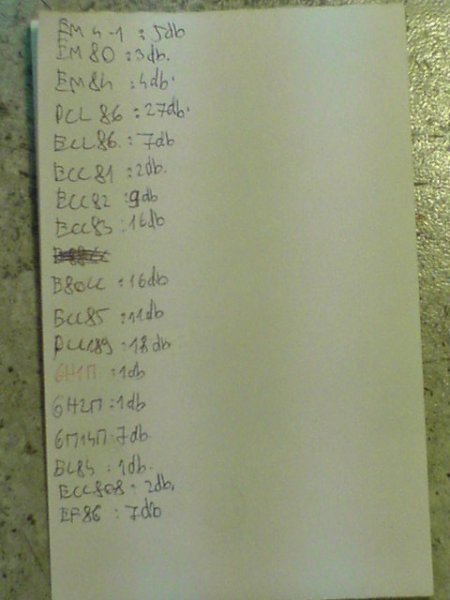 EM 4-1 : 5db
EM 80 : 3db.
EM84 : 4db.
PCL 86 : 27db.
ECL86 : 7db
ECC 81 : 2db.
ECC 82 : 9db
ECC 83 : 16db
: 16db
ECC85 : 11db
PCC189 : 18db
6H1П : 1db
6H2П : 1db
6П14П : 7db
EL84 : 1db.
ECC808 : 2db.
EF86 : 7db